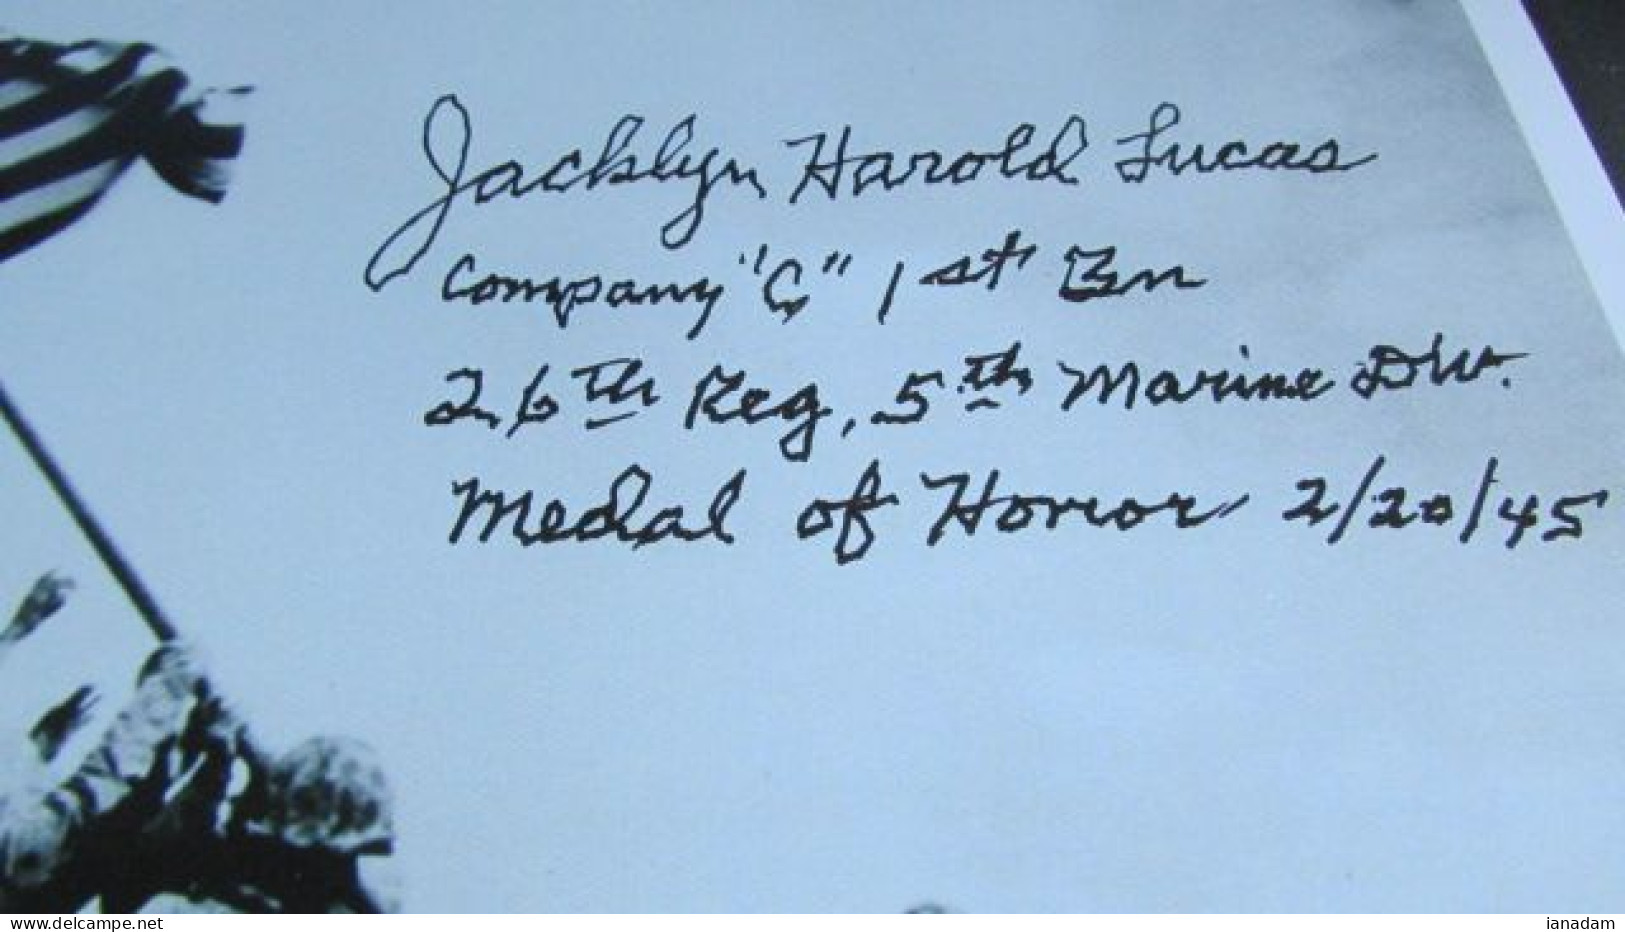 Jacklyn Harold Lucas
Company "C" 1st Bn
26th Reg, 5th Marine Div.
Medal of Honor 2/20/45
delcampe.net
ianadam